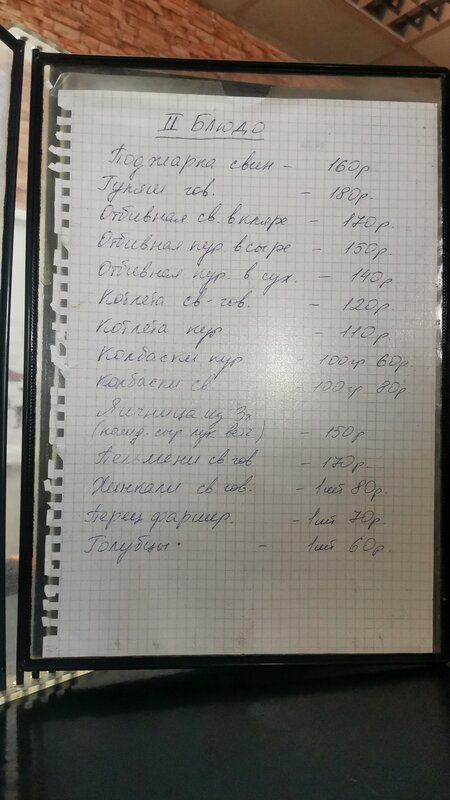 II БЛЮДО
Поджарка свин - 160р.
Гуляш гов. - 180р.
Отбивная св. в кляре - 170р.
Отбивная кур. в сыре - 150р.
Отбивная кур. в сух. - 140р.
Котлета св-гов. - 120р.
Котлета кур - 110р.
Колбаски кур. - 100гр 60р.
Колбаски св - 100гр 80р
Яичница из 3х
(помид. сыр лук ветч) - 150р.
Пельмени св гов - 170р.
Хинкали св гов. - 1шт 80р.
Перец фаршир. - 1шт 70р.
Голубцы. - 1шт 60р.